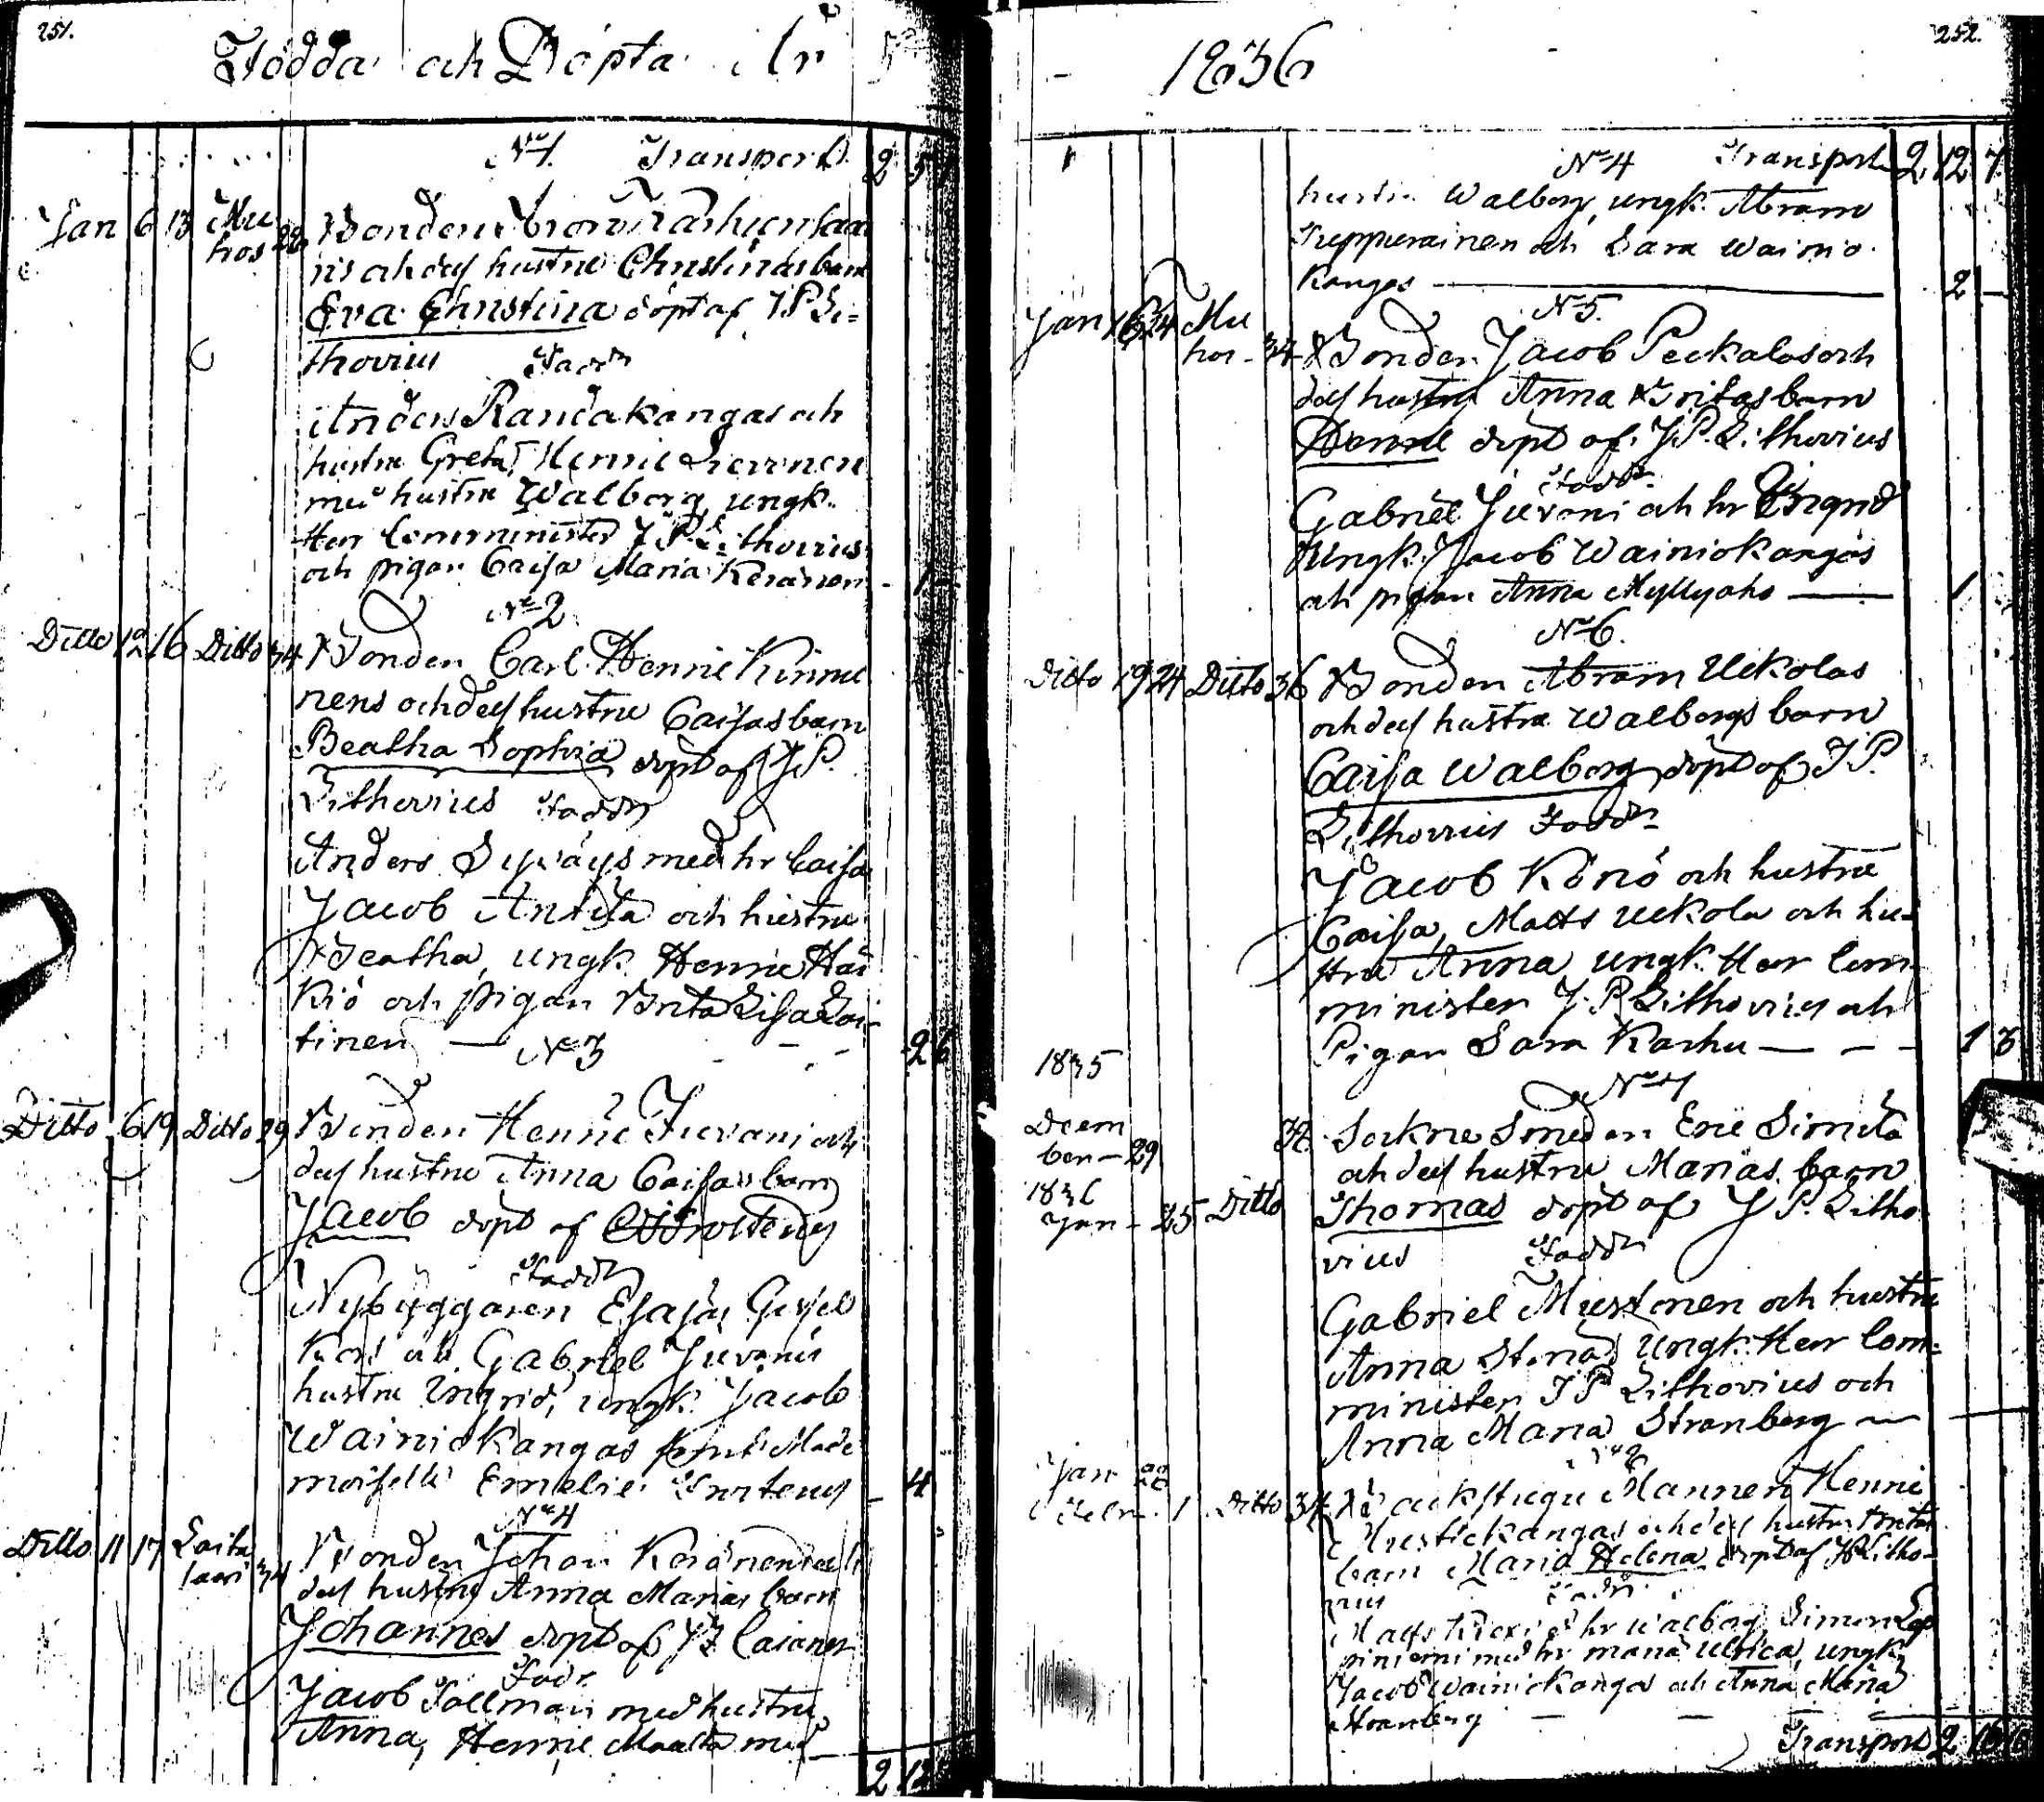 251.
Födda och Döpta År
N:o 1. Transport 2 5
Jan 6 13 Mu
hos 28 Bonden
ris och dess hustru Christinas barn
Eva Christina döpt af J P Li=
thovius Faddr
Anders Randakangas och
hustru Greta, Henric
med hustru Walborg, ungk.
Herr Comminister J P Lithovius
och pigan Caisa Maria Keränen - 1 -
N:o 2
Ditto 12 16 Ditto 34 Bonden Carl Henric Kinnu
nens och dess hustru Caisas barn
Beatha Sophia döpt af J P.
Lithovius Faddr
Anders med hr Caisa
Jacob Anttila och hustru
Beatha, ungk. Henric Här
kiö och pigan Brita Lisa Lai
tinen — 2 6
N:o 3
Ditto 6 19 Ditto 29 Bonden Henric Juvani och
dess hustru Anna Caisas barn
Jacob döpt af
Faddr
Nybyggaren Esajas
och Gabriel Juvanis
hustru Ingrid, ungk. Jacob
Wainiokangas samt Made
moiselle Emelie - 4
N:o 4
Ditto 11 17 Laita
saari 34 Bonden Johan Keränens och
dess hustru Anna Marias barn
Johannes döpt af
Fadr.
Jacob Tollman med hustru
Anna, Henric Maatta med
2 12
252.
1836
N:o 4 Transport 2 12 7
hustru Walborg, ungk. Abram
Tuppurainen och Sara Wainio
kangas — 2 —
N:o 5.
Jan 16 24 Mu
hos - 34 Bonden Jacob Peckalas och
dess hustru Anna Britas barn
Henric döpt af J P. Lithovius
Faddr
Gabriel Juvani och hr Ingrid
Ungk. Jacob Wainiokangas
och pigan Anna Myllyaho — 1
N:o 6.
Ditto 19 24 Ditto 36 Bonden Abram Uckolas
och dess hustru Walborgs barn
Caisa Walborg döpt af J P.
Lithovius Faddr
Jacob Könö och hustru
Caisa, Matts Uckola och hu-
stru Anna, ungk. Herr Com
minister J. P Lithovius och
Pigan Sara Karhu — — - 1 3
1835 N:o 7
Decem
ber - 29 Sockne Smeden Eric Simila
och dess hustru Marias barn
1836
Jan - 25 Ditto Thomas döpt af J P. Litho
vius Faddr
Gabriel Mustonen och hustru
Anna Stina, Ungk. Herr Com=
minister J P Lithovius och
Anna Maria Stranberg —
N:o 8
Jan 28
Febr. 1 Ditto 34 Backstugu Mannen Henric
och dess hustru Britas
barn Maria Helena döpt af J P Litho-
vius Faddr
Matts hr Walborg, Simon
med hr Maria Ulrica, ungk.
Jacob Wainiokangas och Anna Maria
Stranberg — —
Transport 2 16